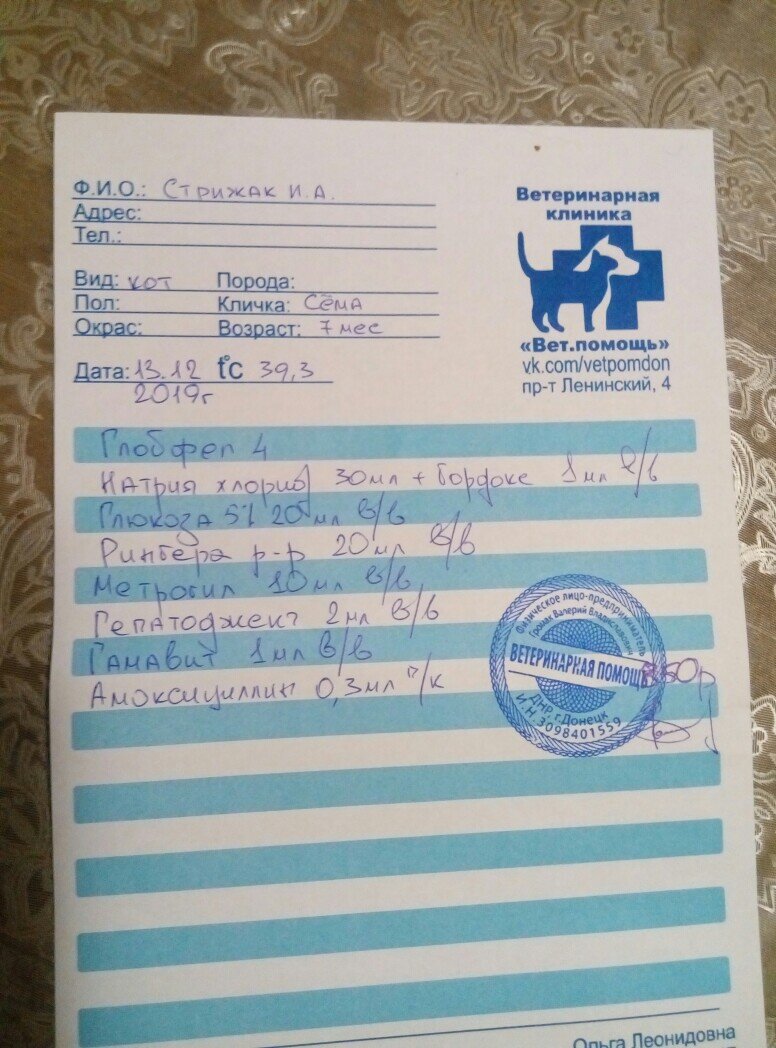 Ф.И.О.: Стрижак И.А.
Адрес:
Тел.:
Вид: кот Порода:
Пол: Кличка: Сёма
Окрас: Возраст: 7 мес
Дата: 13.12 t°C 39,3
2019г
Ветеринарная
клиника
«Вет.помощь»
vk.com/vetpomdon
пр-т Ленинский, 4
Глобфел 4
Натрия хлорид 30мл + Гордокс 1мл в/в
Глюкоза 5% 20мл в/в
Рингера р-р 20мл в/в
Метрогил 10мл в/в
Гепатоджект 2мл в/в
Гамавит 1мл в/в
Амоксициллин 0,3мл п/к
Физическое лицо-предприниматель
Валерий Владиславович
ВЕТЕРИНАРНАЯ ПОМОЩЬ
ДНР г.Донецк
И.Н. 3098401559
Ольга Леонидовна